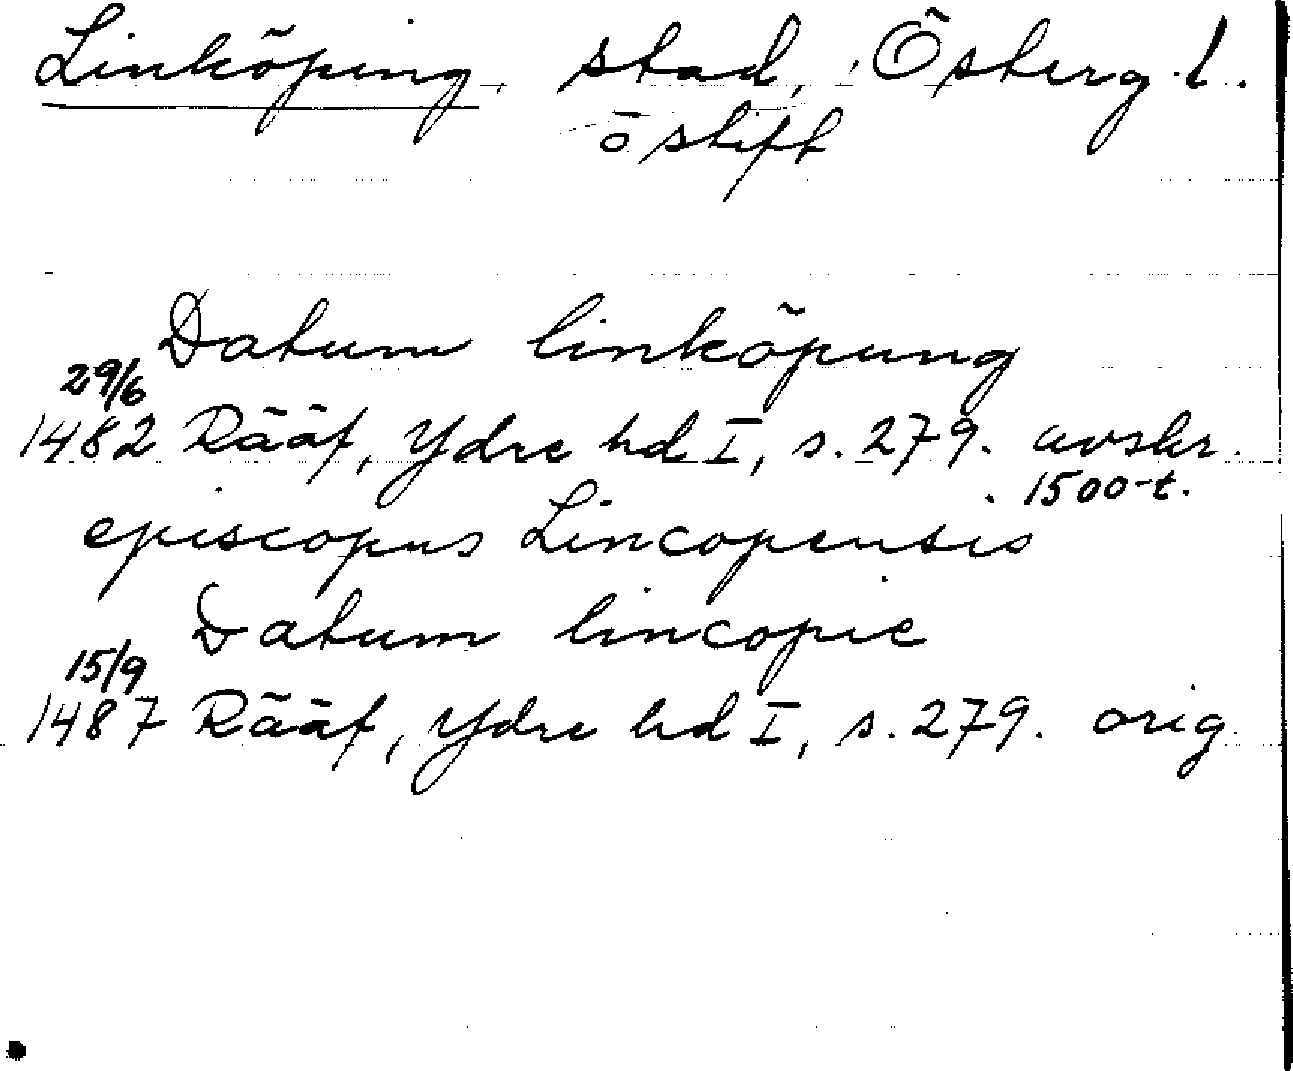 Linköping, stad, Österg. l.
o stift
Datum linköpung
29/6
1482 Rääf, Ydre hd I, s. 279. avskr.
1500-t.
episcopus Lincopensis
Datum lincopie
15/9
1487 Rääf, Ydre hd I, s. 279. orig.